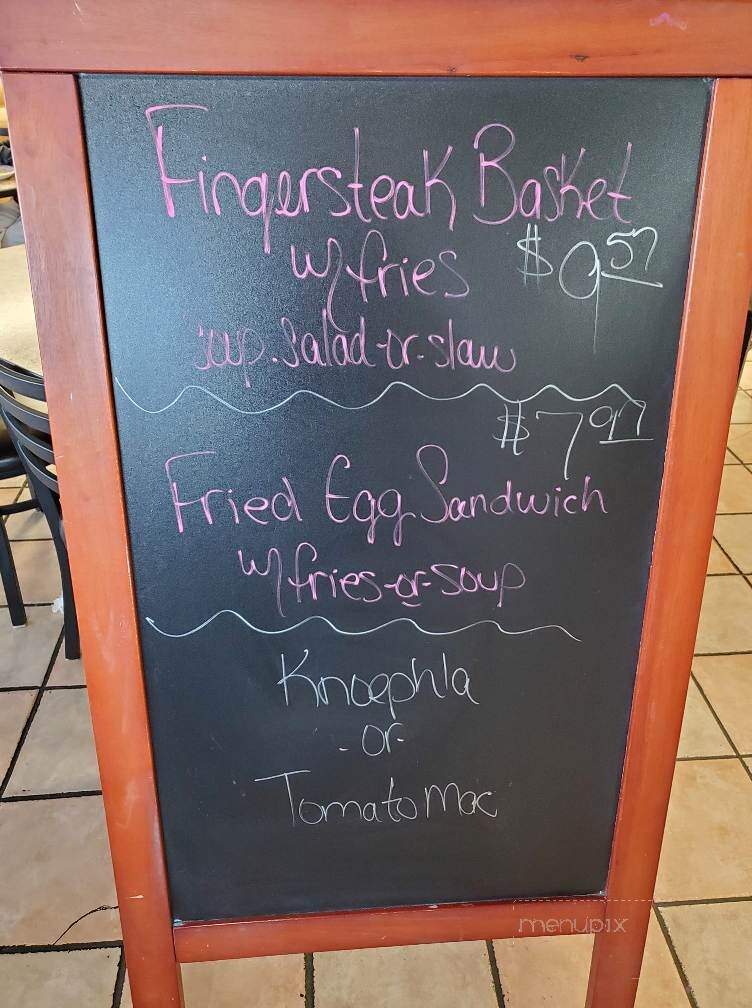 Fingersteak Basket
w/fries $9.57
soup.salad-or-slaw
$7.97
Fried Egg Sandwich
w/fries-or-soup
Knoephla
-or-
Tomato Mac
menupix